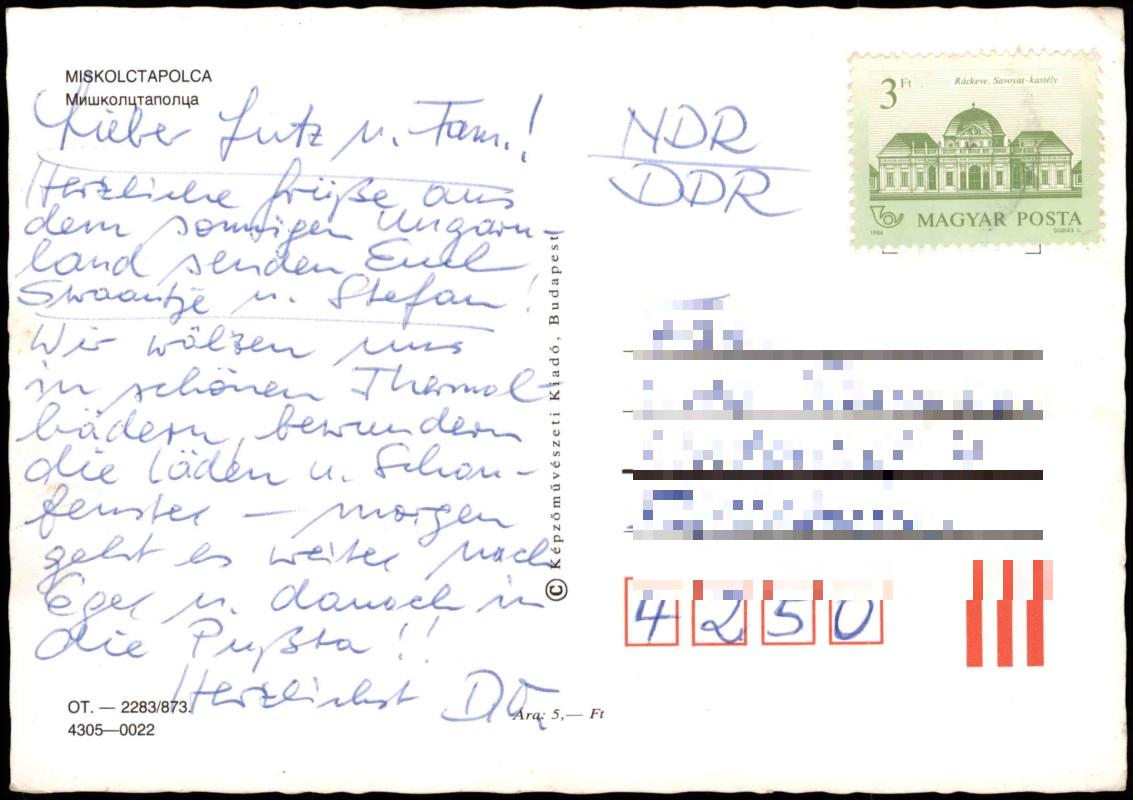 MISKOLCTAPOLCA
Мишколцтаполца
Lieber Lutz u. Fam.!
Herzliche Grüße aus
dem sonnigen Ungarn-
land senden Euch
Swaantje u. Stefan!
Wir wälzen uns
in schönen Thermal-
bädern, bewundern
die Läden u. Schau-
fenster — morgen
geht es weiter nach
Eger u. danach in
die Pußta!!
Herzlichst
OT. — 2283/873.
4305—0022
Ára: 5,— Ft
© Képzőművészeti Kiadó, Budapest
NDR
DDR
3 Ft
Ráckeve, Savoyai-kastély
MAGYAR POSTA
1986
DUDÁS L.
4250